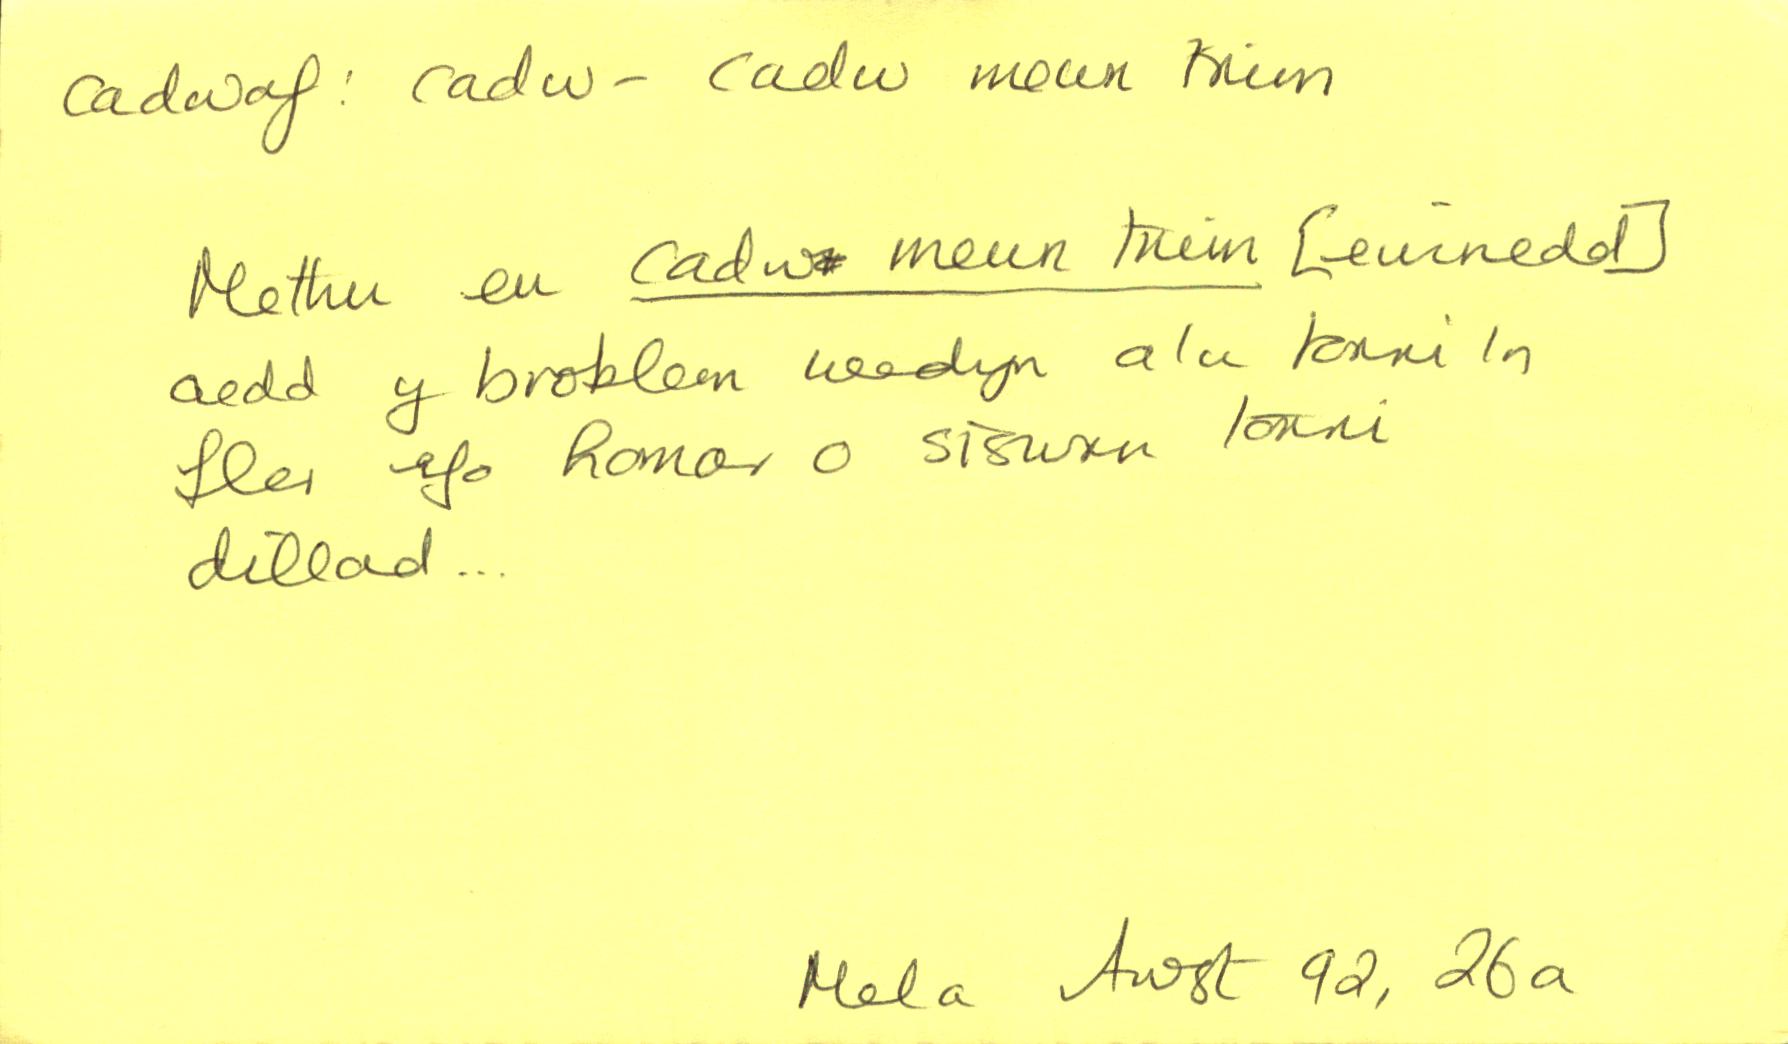 cadwaf: cadw – cadw mewn trim
Methu eu cadw mewn trim [ewinedd]
oedd y broblem wedyn a'u torri'n
fler efo homar o siswrn torri
dillad...
Mela Awst 92, 26a